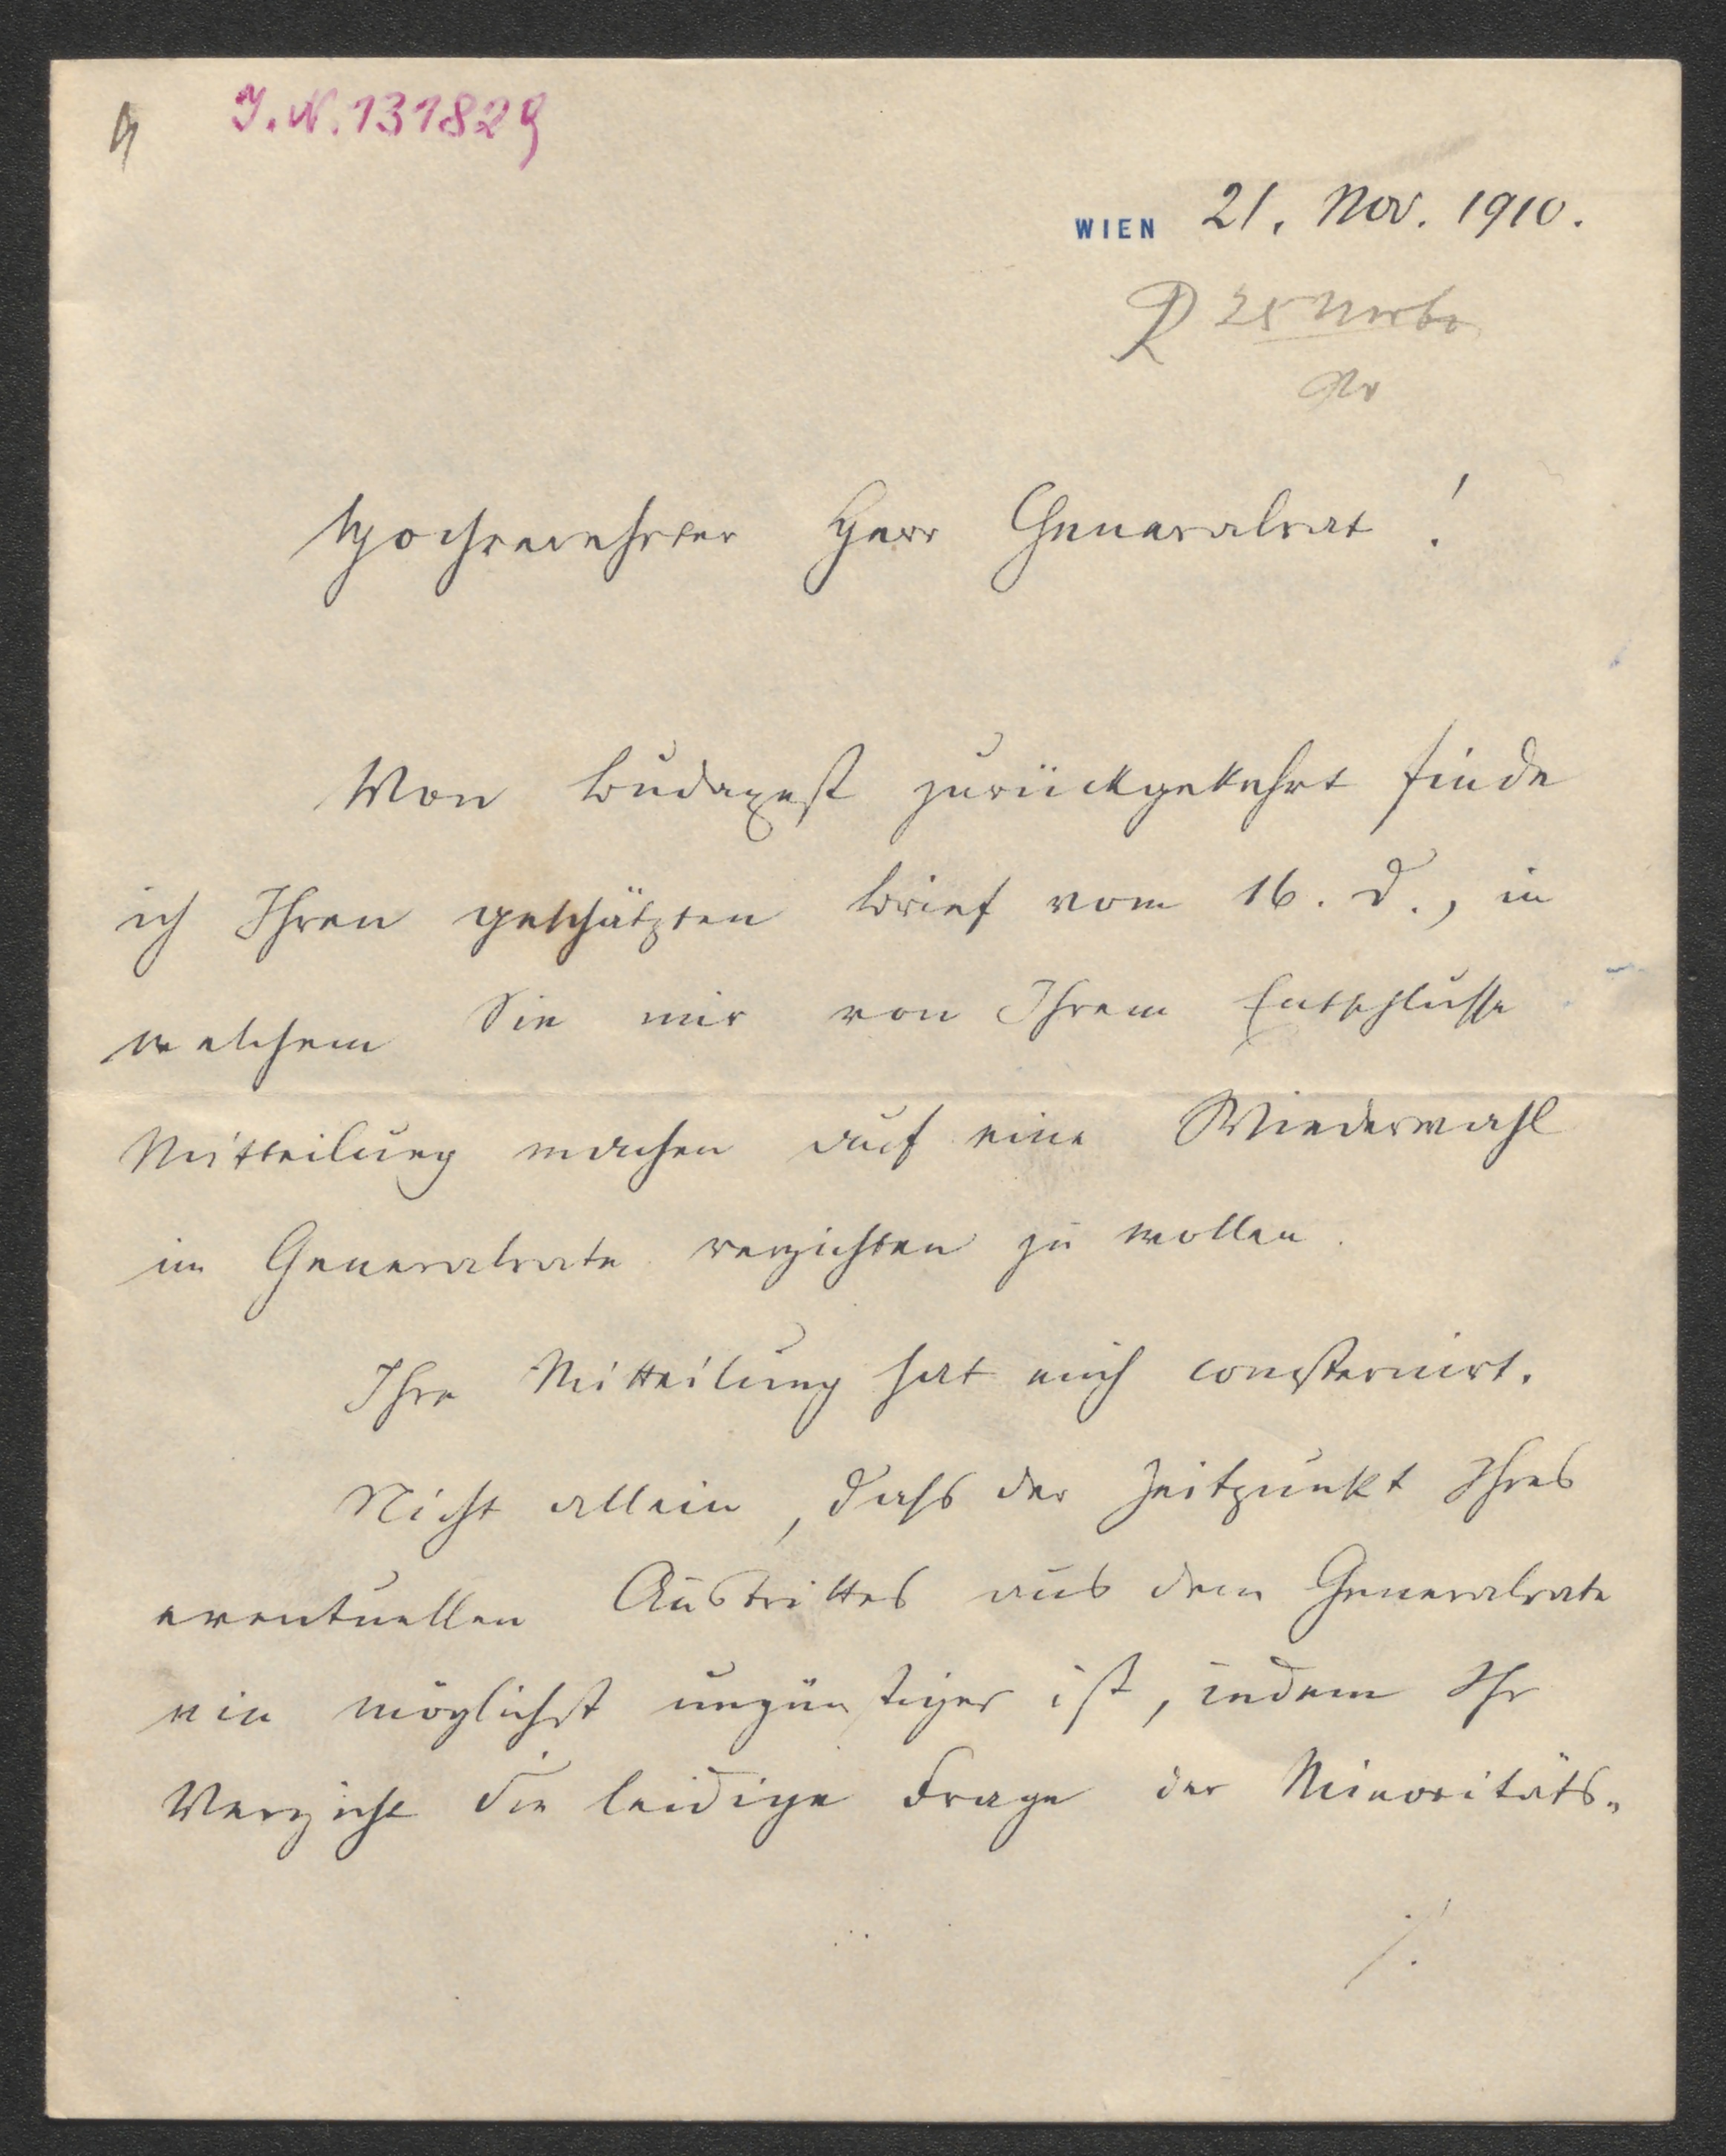 J.N. 131829
WIEN 21. Nov. 1910.
R 25 Novbr
Hochverehrter Herr Generalrat!
Von Budapest zurückgekehrt finde
ich Ihren geschätzten Brief vom 16. d., in
welchem Sie mir von Ihrem Entschlusse
Mitteilung machen auf eine Wiederwahl
im Generalrate verzichten zu wollen.
Ihre Mitteilung hat mich consternirt.
Nicht allein, dass der Zeitpunkt Ihres
eventuellen Austrittes aus dem Generalrate
ein möglichst ungünstiger ist, indem Ihr
Verzicht die leidige Frage der Minoritäts-
./.